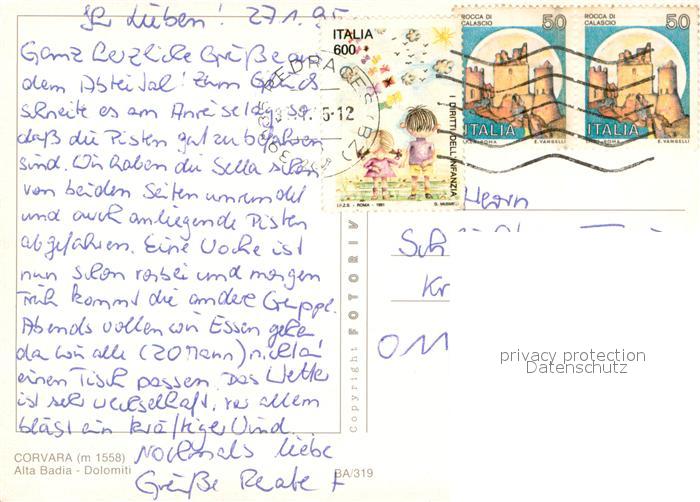 Ihr Lieben! 27.1.95
Ganz herzliche Grüße aus
dem Abteital! Zum Glück
schneite es am Anreisetag so
daß die Pisten gut zu befahren
sind. Wir haben die Sella schon
von beiden Seiten umrundet
und auch anliegende Pisten
abgefahren. Eine Woche ist
nun schon vorbei und morgen
früh kommt die andere Gruppe.
Abends wollen wir Essen gehen
da wir alle (20 Mann) nicht an
einen Tisch passen. Das Wetter
ist sehr wechselhaft, vor allem
bläst ein kräftiger Wind.
Nochmals liebe
Grüße Renate
CORVARA (m 1558)
Alta Badia - Dolomiti
BA/319
Copyright FOTORIV
ITALIA
600
I DIRITTI DELL'INFANZIA
I.P.Z.S. - ROMA - 1991
PEDRACES (BZ)
5-12
ROCCA DI
CALASCIO
50
ITALIA
E. VANGELLI
ROCCA DI
CALASCIO
50
ITALIA
E. VANGELLI
Herrn
Sch
Kr
011
privacy protection
Datenschutz